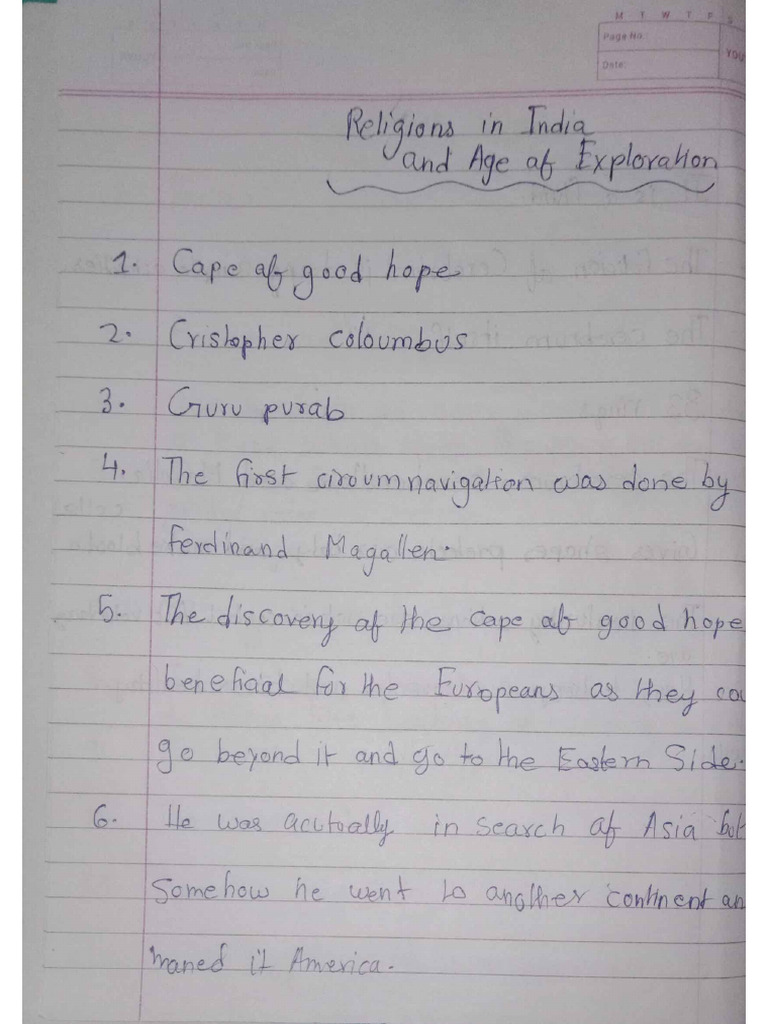 M T W T F S
Page No.:
Date:
YOU
Religions in India
and Age of Exploration
1. Cape of good hope
2. Cristopher coloumbus
3. Guru purab
4. The first circumnavigation was done by
ferdinand Magallen.
5. The discovery of the cape of good hope
beneficial for the Europeans as they
go beyond it and go to the Eastern Side.
6. He was acutoally in search of Asia but
Somehow he went to another continent
maned it America.